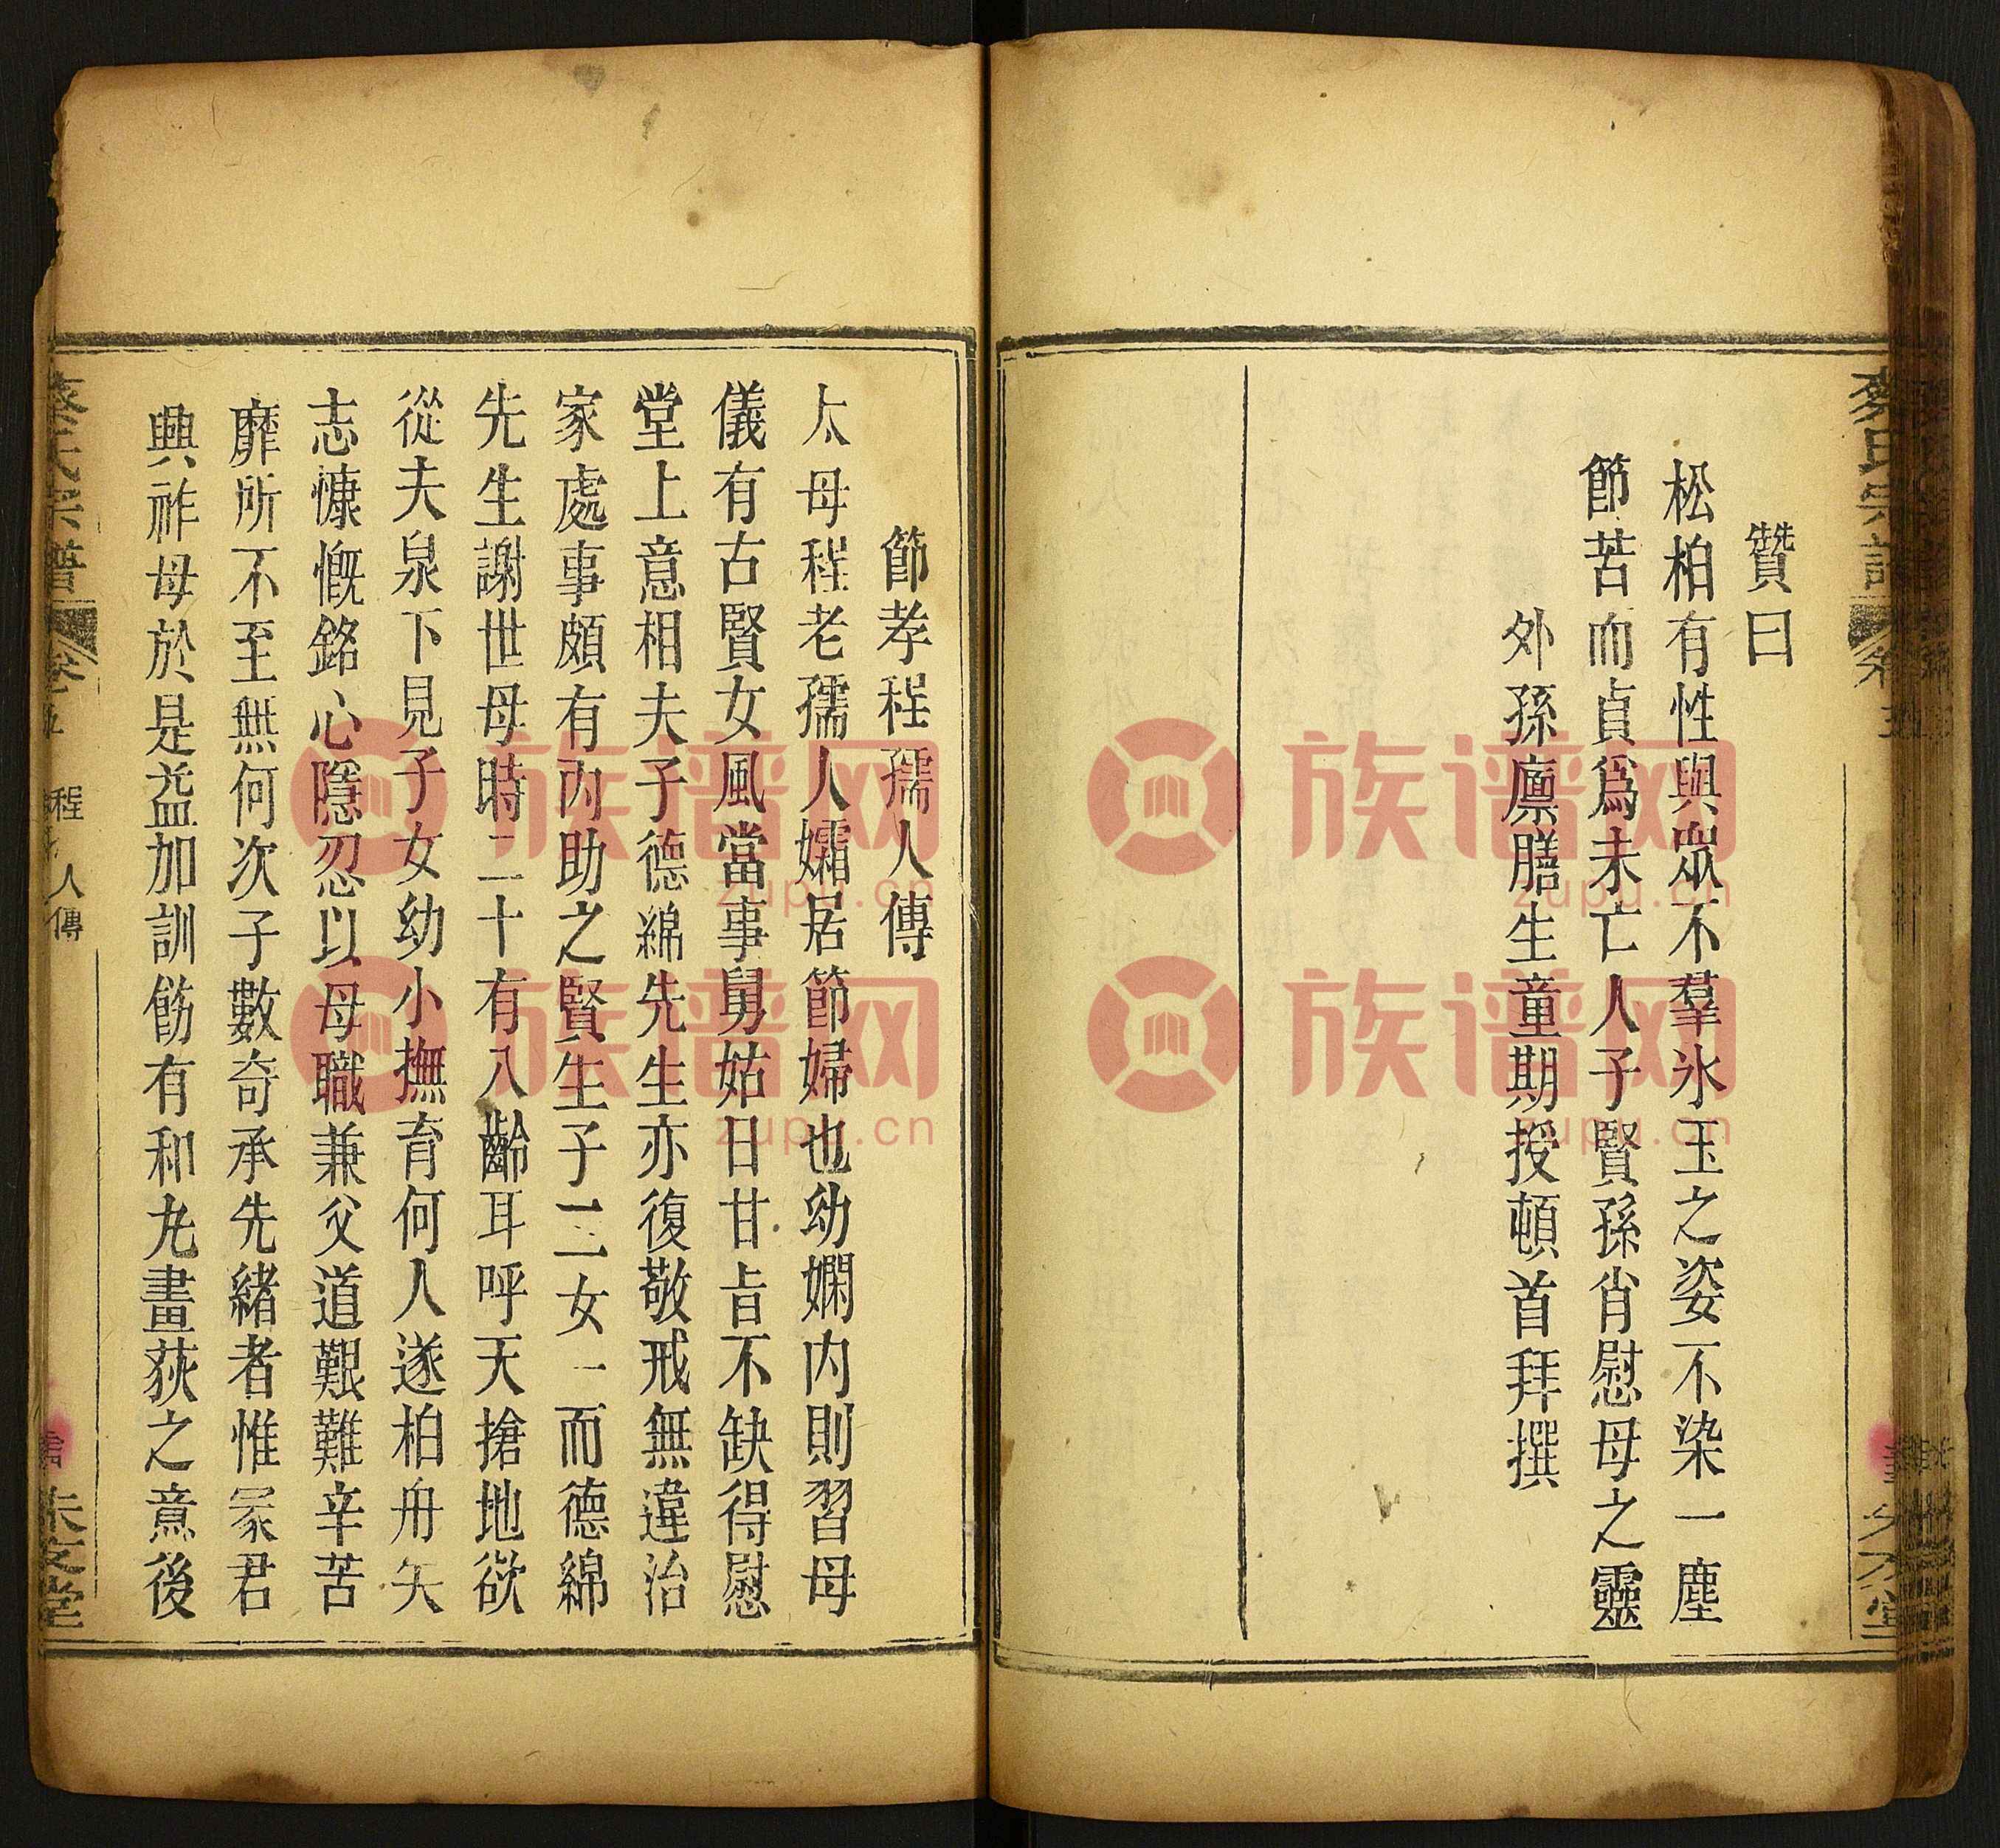 贊曰
松柏有性與眾不羣氷玉之姿不染一塵
節苦而貞爲未亡人子賢孫肖慰母之靈
外孫廪膳生童期授頓首拜撰
節孝程孺人傳
太母程老孺人孀居節婦也幼嫻内則習母
儀有古賢女風當事舅姑日甘旨不缺得慰
堂上意相夫子德綿先生亦復敬戒無違治
家處事頗有内助之賢生子二女一而德綿
先生謝世母時二十有八齡耳呼天搶地欲
從夫泉下見子女幼小撫育何人遂柏舟矢
志慷慨銘心隱忍以母職兼父道艱難辛苦
靡所不至無何次子數奇承先緒者惟冢君
興祚母於是益加訓飭有和丸畫荻之意後
蔡氏宗譜
卷五
程孺人傳
族谱网
zupu.cn
族谱网
zupu.cn
族谱网
zupu.cn
族谱网
zupu.cn